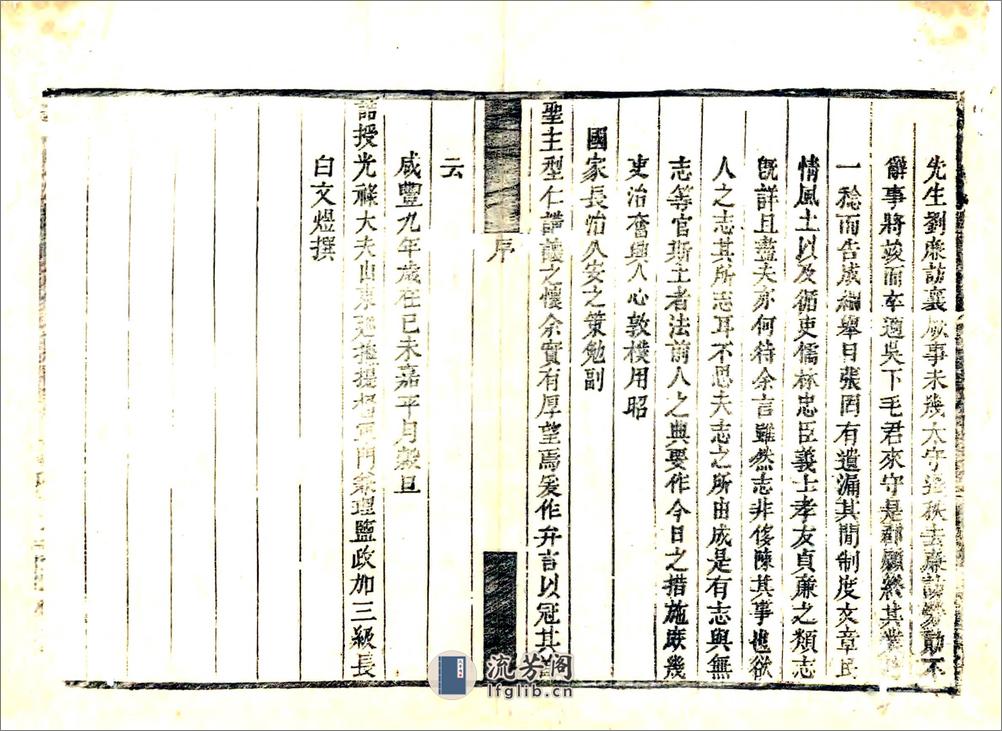 先生劉廉訪襄厥事未幾太守邊秩去廉訪勞勩不
辭事將竣而卒適吳下毛君來守是郡願終其業
一稔而告成綱舉目張罔有遺漏其間制度文章民
情風土以及循吏儒林忠臣義士孝友貞廉之類志
旣詳且盡夫亦何待余言雖然志非侈陳其事也欲
人之志其所志耳不思夫志之所由成是有志與無
志等官斯土者法前人之典要作今日之措施庶幾
吏治奮興人心敦樸用昭
國家長治久安之策勉副
聖主型仁講讓之懷余實有厚望焉爰作弁言以冠其
序
云
咸豐九年歲在己未嘉平月穀旦
誥授光祿大夫山東巡撫提督軍門兼理鹽政加三級長
白文煜撰
流芳閣
lfglib.cn